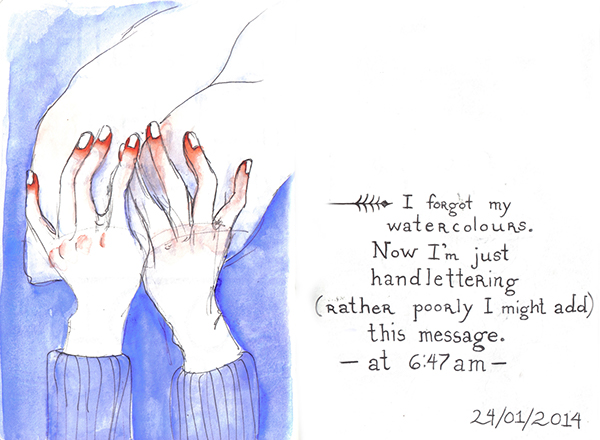 I forgot my
watercolours.
Now I'm just
handlettering
(rather poorly I might add)
this message.
— at 6:47am —
24/01/2014